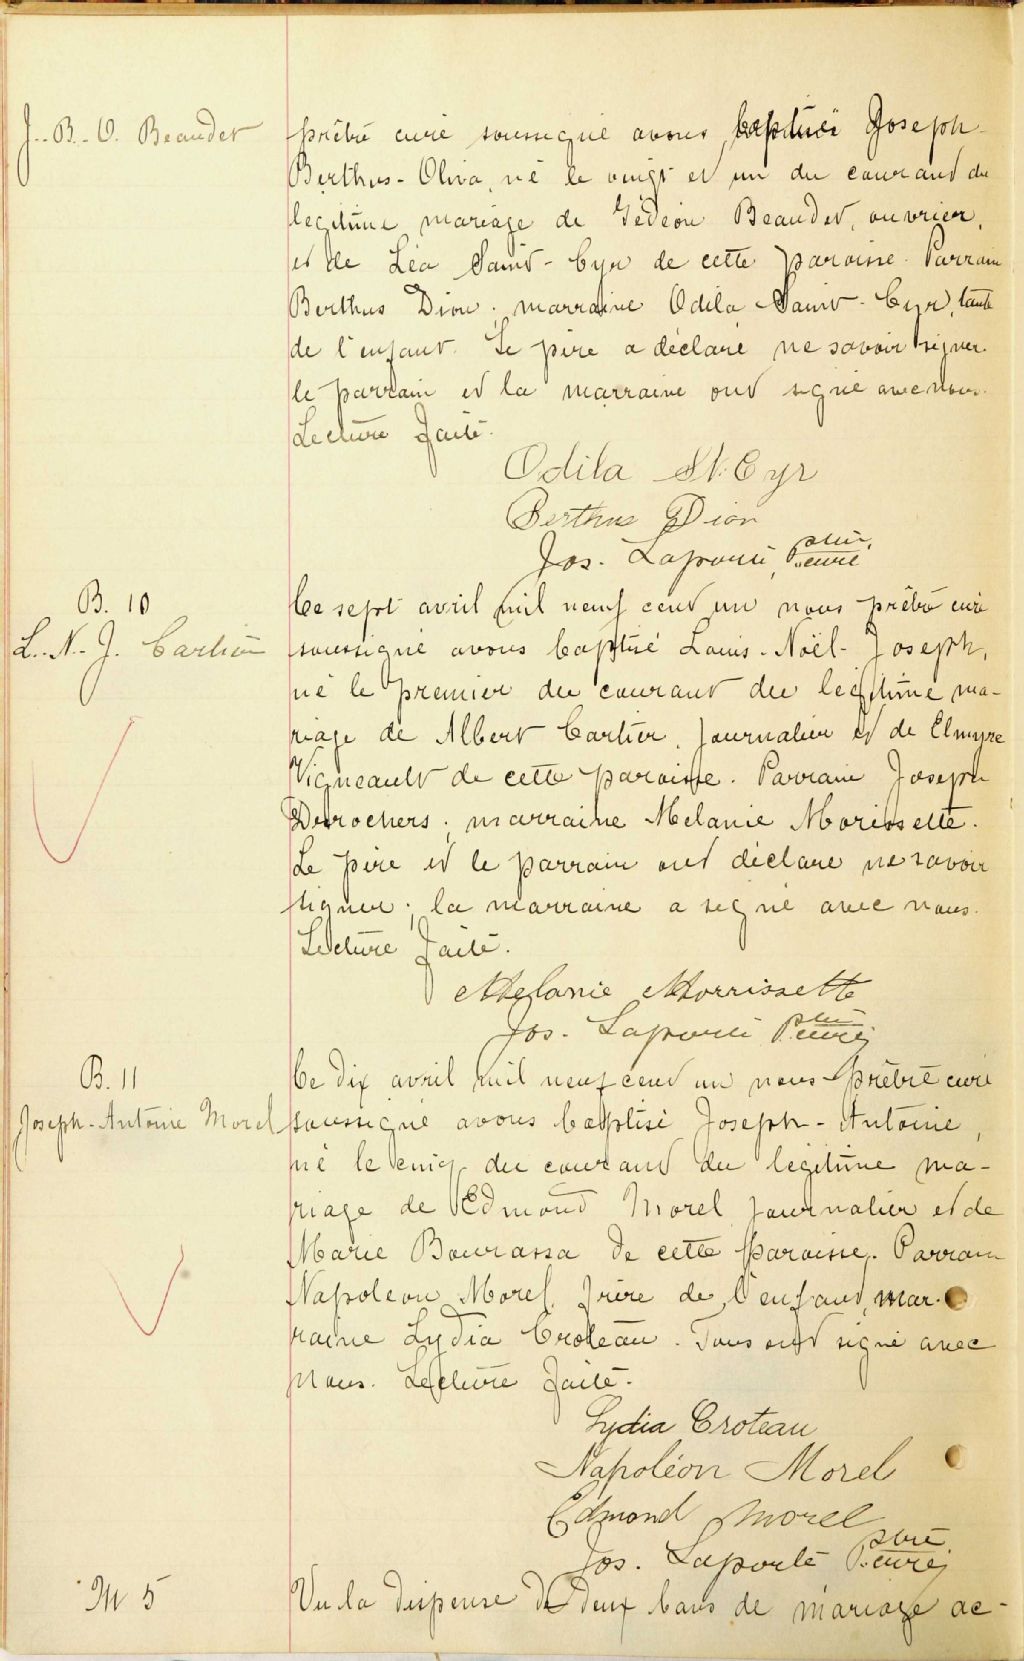 J.-B.-O. Beaudet
prêtre curé soussigné avons baptisé Joseph-
Berthus-Oliva, né le vingt et un du courant du
legitime mariage de Gédéon Beaudet, ouvrier,
et de Léa Saint-Cyr de cette paroisse. Parrain
Berthus Dion; marraine Odila Saint-Cyr, tante
de l'enfant. Le père a déclaré ne savoir signer.
le parrain et la marraine ont signé avec nous.
Lecture faite.
Odila St. Cyr
Berthus Dion
Jos. Laporte, ptre, curé
B. 10
L.-N.-J. Cartier
Ce sept avril mil neuf cent un nous prêtre curé
soussigné avons baptisé Louis-Noël-Joseph,
né le premier du courant du legitime ma-
riage de Albert Cartier, journalier et de Elmyre
Vigneault de cette paroisse. Parrain Joseph
Desrochers; marraine Melanie Morissette.
Le père et le parrain ont déclaré ne savoir
signer; la marraine a signé avec nous.
Lecture faite.
Melanie Morrissette
Jos. Laporte ptre curé
B. 11
Joseph-Antoine Morel
Ce dix avril mil neuf cent un nous prêtre curé
soussigné avons baptisé Joseph-Antoine,
né le cinq du courant du legitime ma-
riage de Edmond Morel journalier et de
Marie Bourassa de cette paroisse. Parrain
Napoleon Morel, frère de l'enfant, mar-
raine Lydia Croteau. Tous ont signé avec
nous. Lecture faite.
Lydia Croteau
Napoléon Morel
Edmond Morel
Jos. Laporte ptre curé
M 5
Vu la dispense de deux bans de mariage ac-